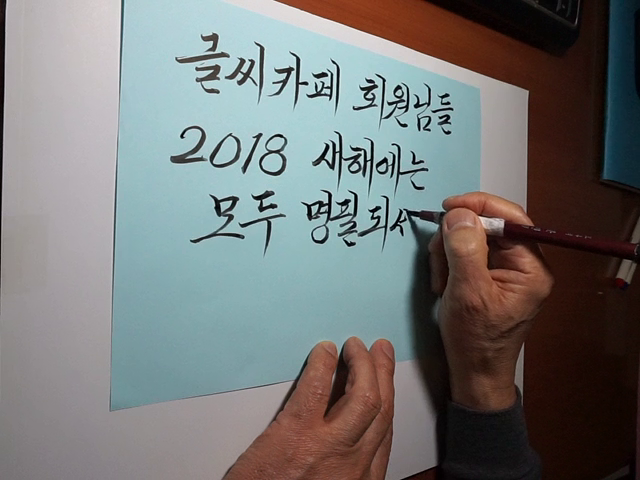 글씨카페 회원님들
2018 새해에는
모두 명필되시